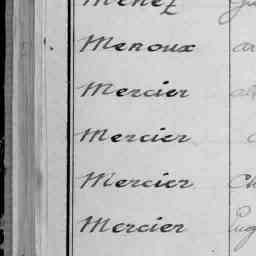 Menez
Meroux
Mercier
Mercier
Mercier
Mercier